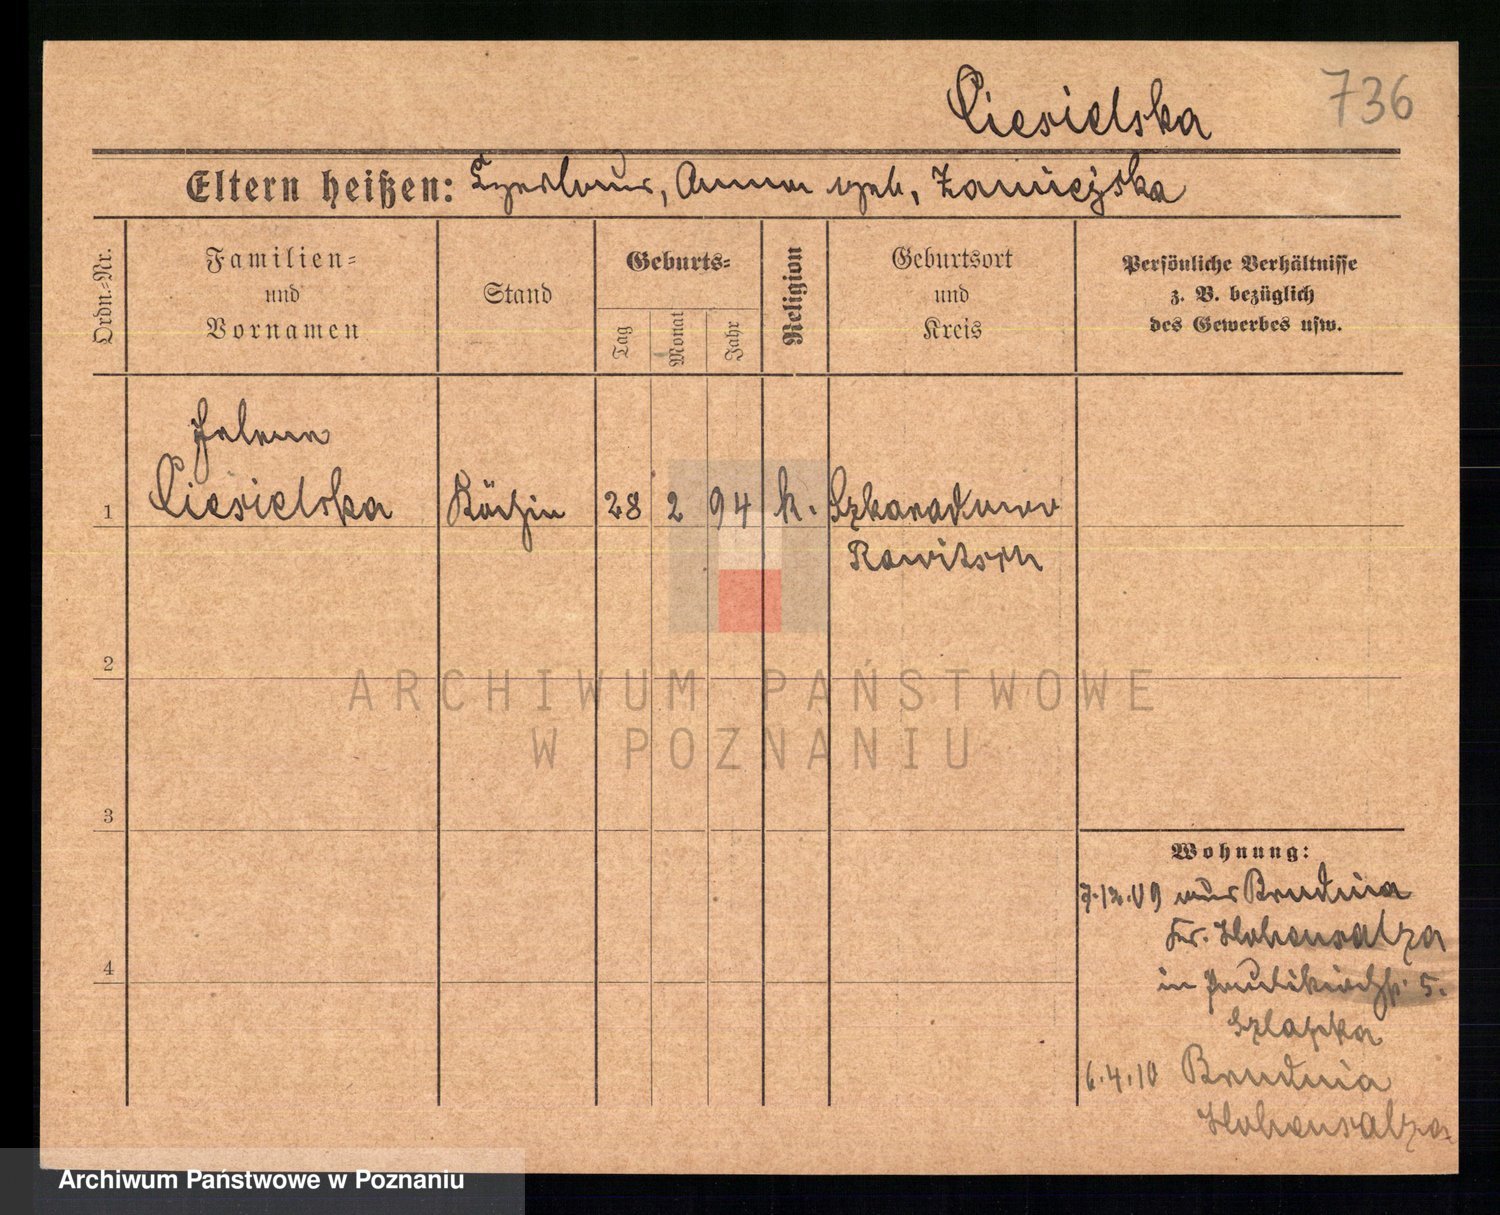 Ciesielska 736
Eltern heißen: Czeslaus, Anna geb. Zaniejska
Ordn.-Nr.
Familien-
und
Vornamen
Stand
Geburts-
Tag
Monat
Jahr
Religion
Geburtsort
und
Kreis
Persönliche Verhältnisse
z. B. bezüglich
des Gewerbes usw.
Helena
1 Ciesielska Köchin 28 2 94 k. Szkaradowo
Rawitsch
2
ARCHIWUM PAŃSTWOWE
W POZNANIU
3
Wohnung:
7.12.09 aus Brudnia
Kr. Hohensalza
4
in Paulikirchstr. 5.
Szlapka
6.4.10 Brudnia
Hohensalza
Archiwum Państwowe w Poznaniu